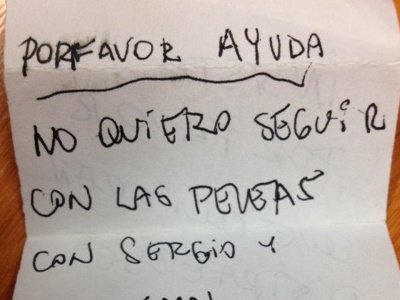 POR FAVOR AYUDA
NO QUIERO SEGUIR
CON LAS PELEAS
CON SERGIO Y